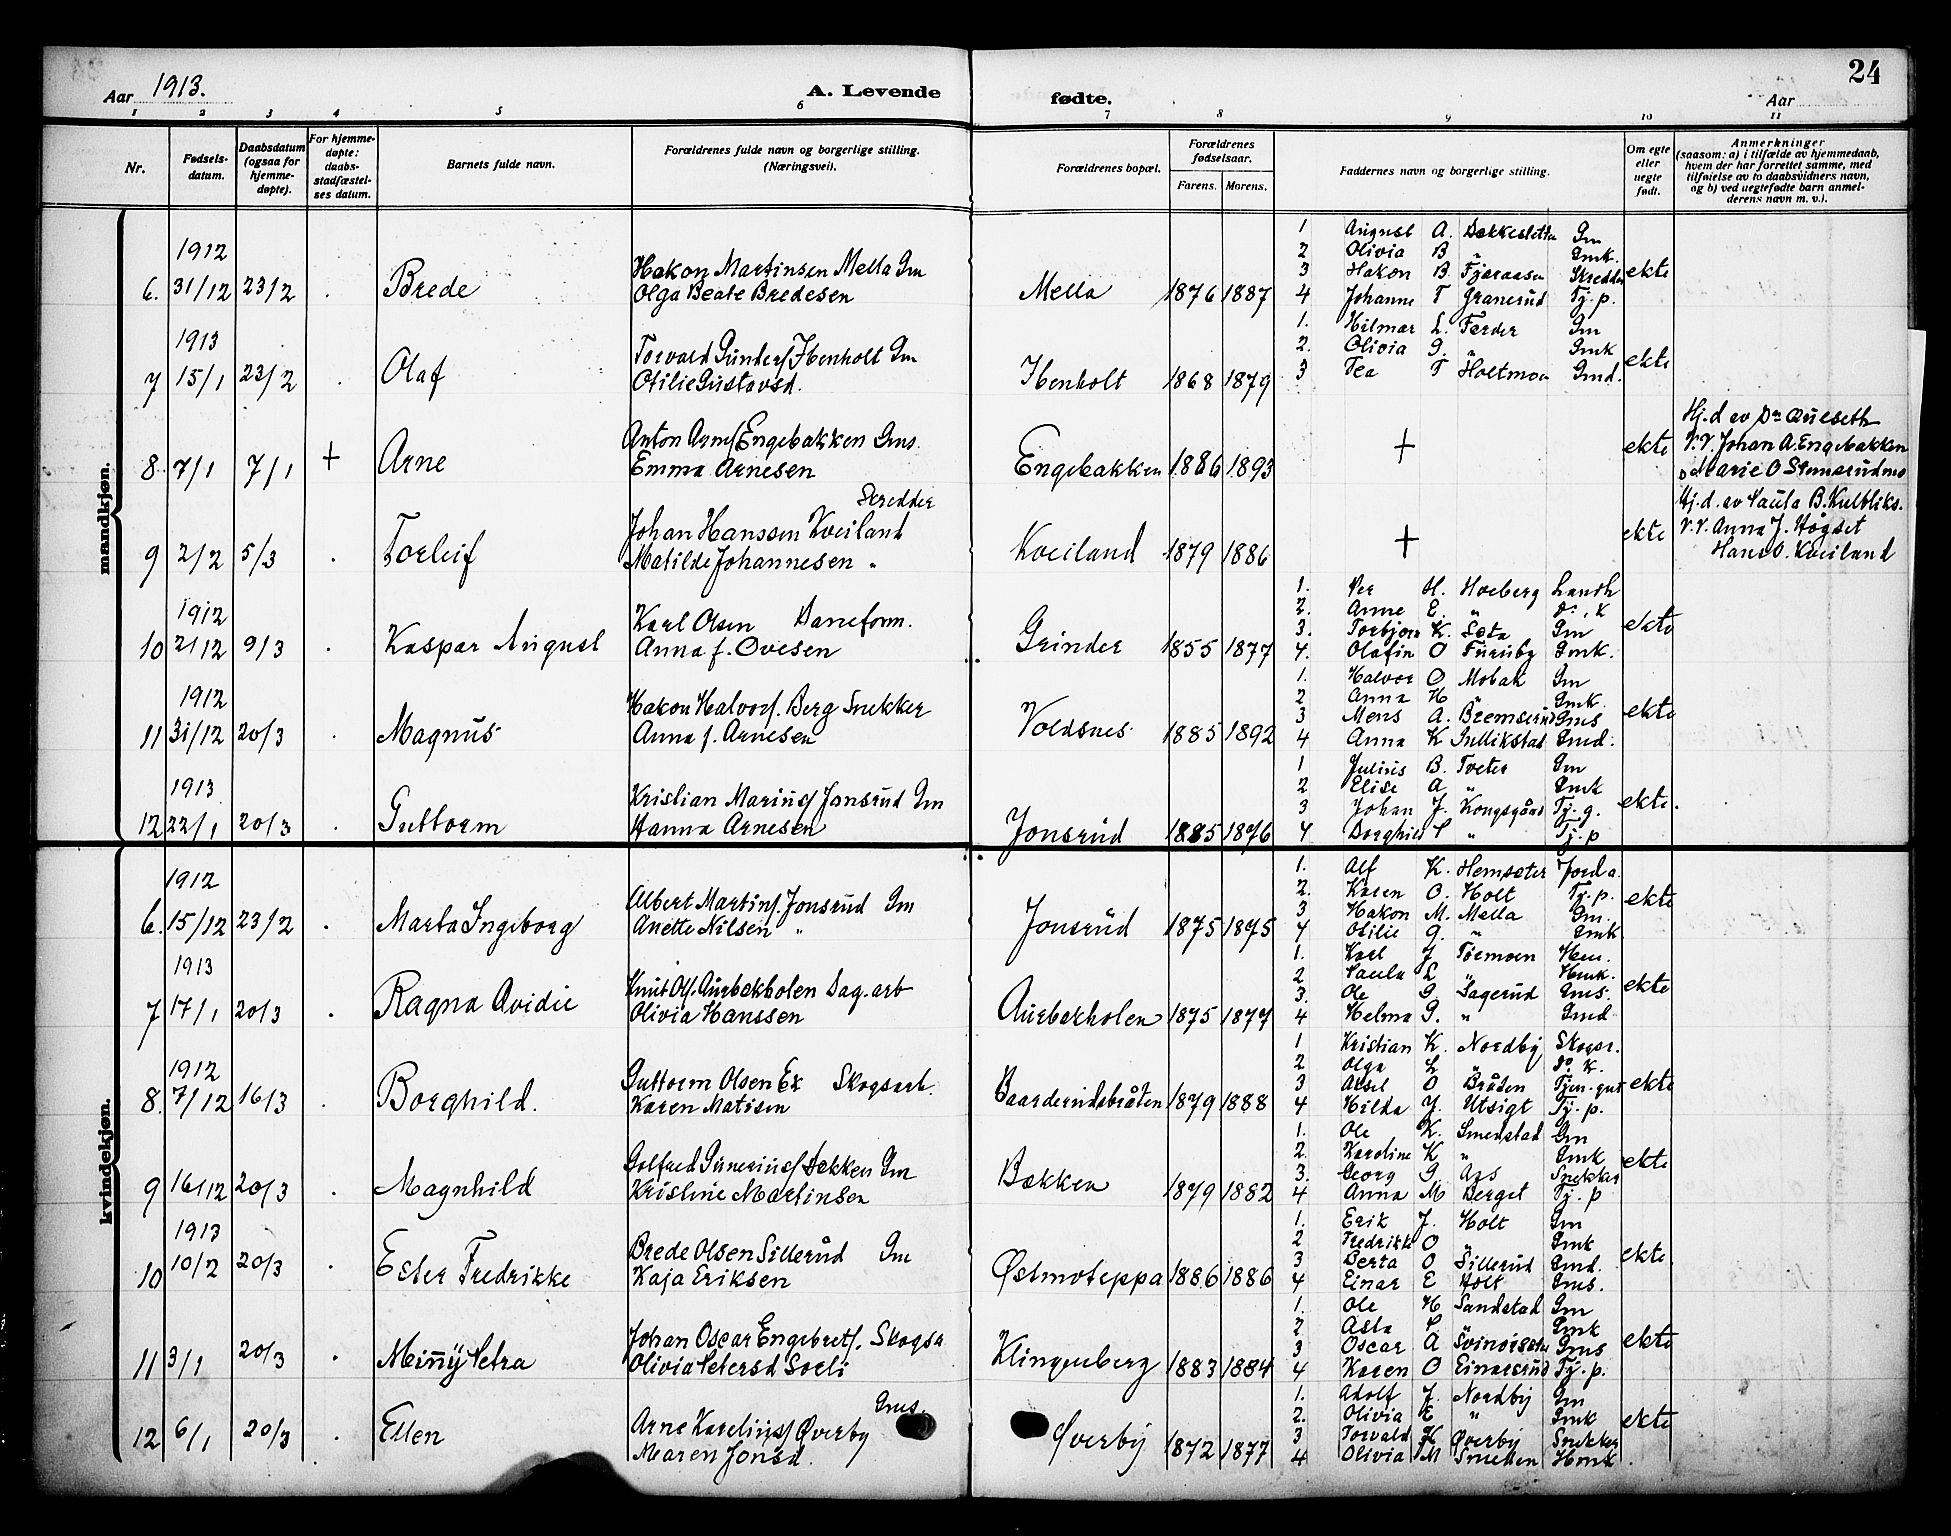 24
Aar 1913. A. Levende fødte. Aar
1 2 3 4 5 6 7 8 9 10 11
Nr. Fødsels-datum. Daabsdatum (ogsaa for hjemme-døpte). For hjemme-døpte: daabs-stadfæstel-ses datum. Barnets fulde navn. Forældrenes fulde navn og borgerlige stilling. (Næringsvei). Forældrenes bopæl. Forældrenes fødselsaar. Farens. Morens. Faddernes navn og borgerlige stilling. Om egte eller uegte født. Anmerkninger (saasom: a) i tilfælde av hjemmedaab, hvem der har forrettet samme, med tilføielse av to daabsvidners navn, og b) ved uegtefødte barn anmel-derens navn m. v.).
mandkjøn.
1912
6. 31/12 23/2 . Brede
Hakon Martinsen Mella Gm
Olga Beate Bredesen
Mella 1876 1887
1 August A.
2 Olivia B. " Gmk.
3 Hakon B. Fjæraasen Skredder
4 Johanne T Granerud Tj. p.
ekte
1913
7 15/1 23/2 . Olaf
Torvald Gunders/ Ibenholt Gm
Otilie Gustavsd.
Ibenholt 1868 1879
1. Hilmar L. Førder Gm
2. Olivia G. " Gmk
3 Tea T Holtmoen Gmd.
ekte
8 7/1 7/1 + Arne
Anton Arnes/ Engebakken Gms.
Emma Arnesen
Engebakken 1886 1893
+
ekte
Hj.d av Dr Aulseth
V.V. Johan A. Engebakken
o Marie O Stensrudmo
9 2/2 5/3 . Torleif
Skredder
Johan Hanssen Kveiland
Matilde Johannesen "
Kveiland 1879 1886
+
ekte
Hj.d. av Paula B.
V.V. Anna J. Høgset
Hans O. Kveiland
1912
10 21/12 9/3 . Kaspar August
Karl Olsen Baneform.
Anna f. Ovesen
Grinder 1855 1877
1. Per H. Hoeberg Landh
2. Anne E. " Do. K
3. Torbjørn K. Sæta Gm
4. Olafin O Furuby Gmk.
ekte
1912
11 31/12 20/3 . Magnus
Hakon Halvors/. Berg Snekker
Anna f. Arnesen
Voldsnes 1885 1892
1. Halvor O Mobak Gm
2 Anna H " Gmk.
3 Mens A. Bremserud Gms
4 Anna K Gullikstad Gmd.
ekte
1913
12 22/1 20/3 . Guttorm
Kristian Marius/ Jonsrud Gm
Hanna Arnesen
Jonsrud 1885 1876
1 Julius B. Tveter Gm
2 Elise A " Gmk
3 Johan J. Kongsgård Tj. g.
4 Borghild P " Tj. p
ekte.
kvindekjøn.
1912
6. 15/12 23/2 . Marta Ingeborg
Albert Martins/. Jonsrud Gm
Anette Nilsen "
Jonsrud 1875 1875
1. Alf K. Hemsæter Jord a.
2. Karen O. Holt Tj. p.
3. Hakon M. Mella Gm.
4 Otilie G. " Gmk
ekte
1913
7 17/1 20/3 . Ragna Ovidie
Knut Ols. Aurbækholen Dag. arb
Olivia Hanssen
Aurbækholen 1875 1877
1. Karl J Tørmoen Hm.
2 Paula L " Hmk.
3. Ole G. Sagerud Gms.
4 Helma G. " Gmd
ekte
1912
8. 7/12 16/3 . Borghild.
Guttorm Olsen Ek Skogsarb.
Karen Matisen
Baarderudsbråten 1879 1888
1 Kristian K. Nordby Skogsr.
2 Olga L " Do K.
3 Aksel O Bråten Tjen.gut
4 Hilda J. Utsigt Tj. p.
ekte
9 16/12 20/3 . Magnhild
Golfred Gunerius/ Bækken Gm
Kristine Martinsen
Bækken 1879 1882
1. Ole K. Smedstad Gm
2. Karoline K " Gmk
3. Georg G Aas Snekker
4 Anna M Berget Tj. p
ekte
1913
10 10/2 20/3 . Ester Fredrikke
Brede Olsen Sillerud Gm
Kaja Eriksen
Østmoteppa 1886 1886
1. Erik J. Holt Gm
2 Fredrikke O " Gmk
3 Berta O Sillerud Gmd.
4 Einar E Holt Gms.
ekte.
11 3/1 20/3 . Minny Petra
Johan Oscar Engebrets/. Skogsa
Olivia Petersd Soeli
Klingenberg 1883 1884
1. Ole H Sandstad Gm
2 Asta P " Gmk
3 Oscar A Gms
4 Karen O Einarsrud Tj. p.
ekte
12 6/1 20/3 . Ellen
Gms.
Arne Karelius/ Øverby
Maren Jonsd.
Øverby 1872 1877
1. Adolf J. Nordby Gm
2. Olivia E " Gmk
3 Torvald H Øverby Snekker
4 Olivia M Smetten Hmk.
ekte